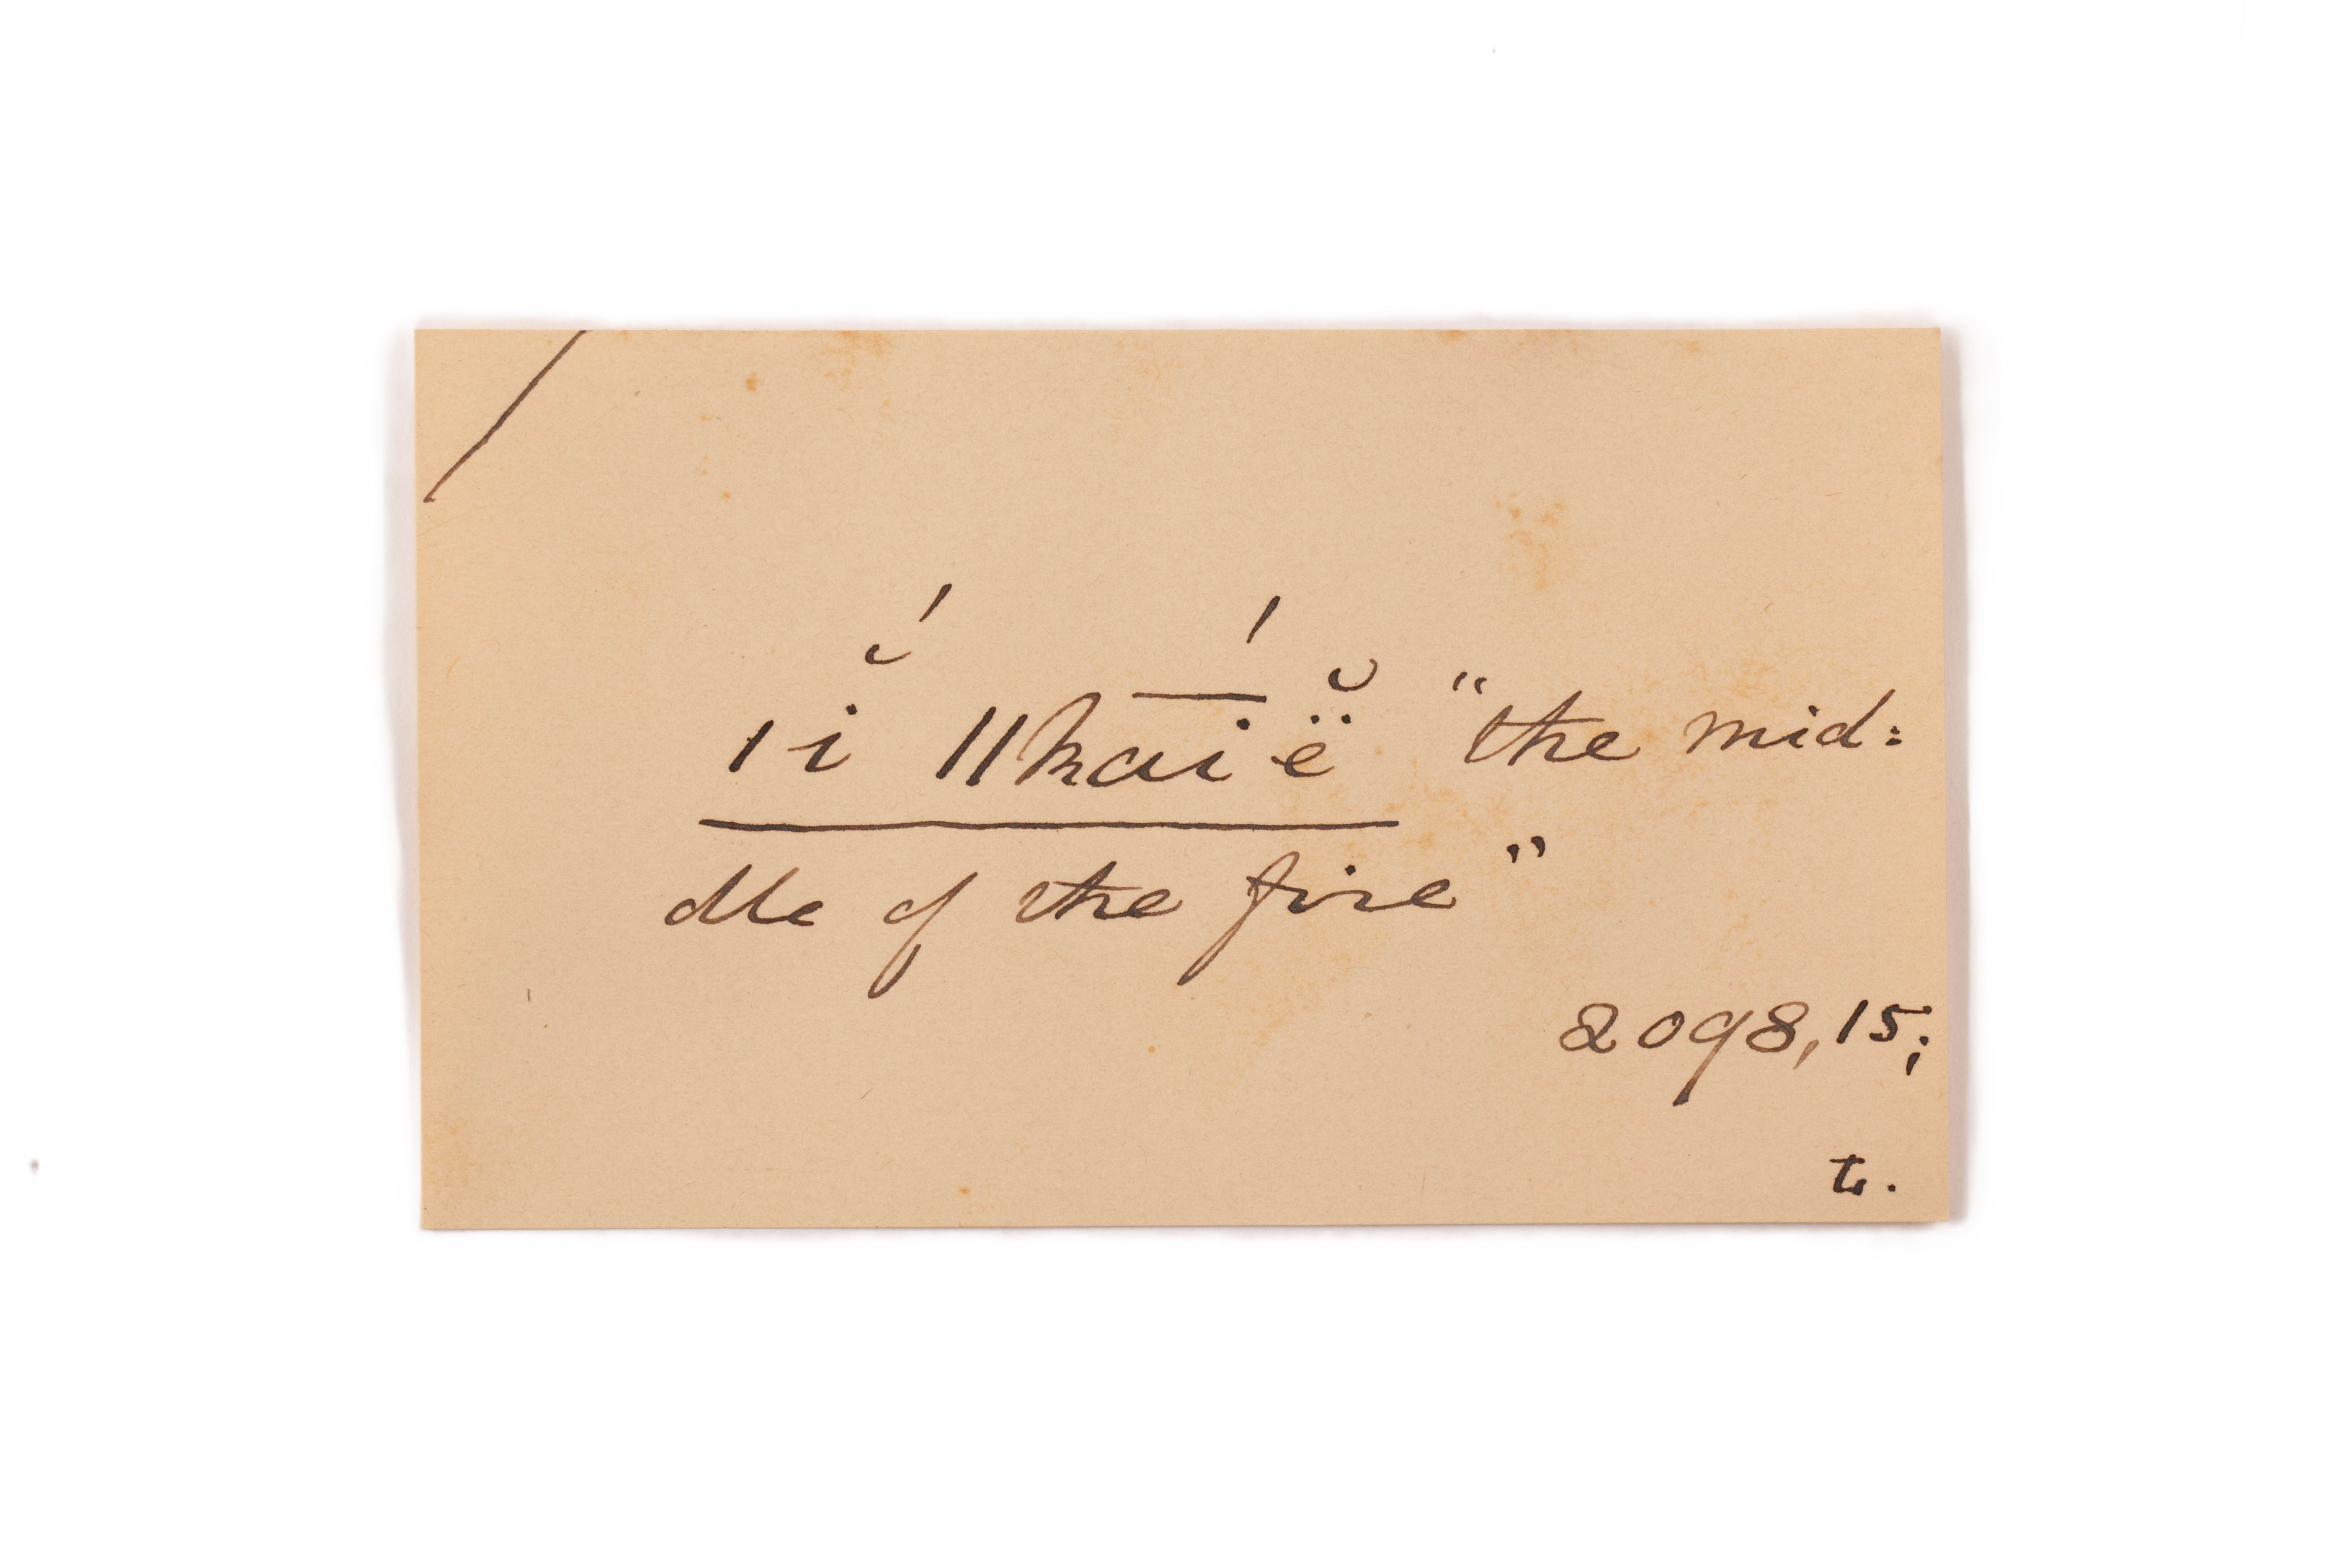 /
ǀí̆ ǁkā́ië̆ "the mid:
dle of the fire"
2098, 15;
t.